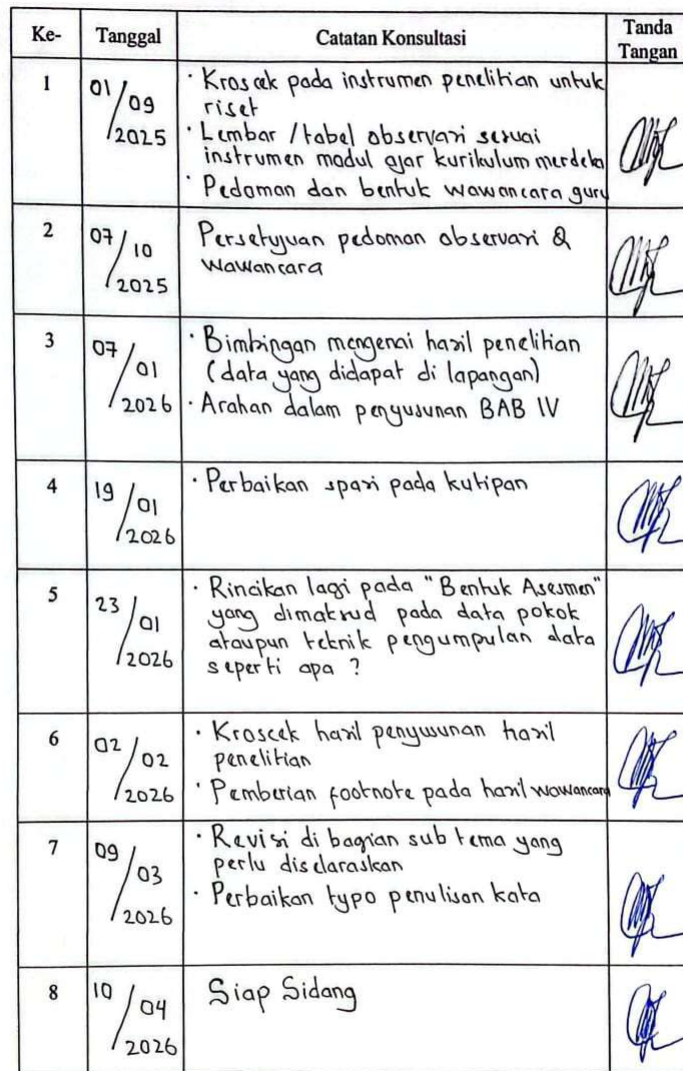 Ke- Tanggal Catatan Konsultasi Tanda Tangan
1 01/09 2025
· Kroscek pada instrumen penelitian untuk
riset
· Lembar / tabel observasi sesuai
instrumen modul ajar kurikulum merdeka
· Pedoman dan bentuk wawancara guru
2 07/10 2025
Persetujuan pedoman observasi &
wawancara
3 07/01 2026
· Bimbingan mengenai hasil penelitian
(data yang didapat di lapangan)
· Arahan dalam penyusunan BAB IV
4 19/01 2026
· Perbaikan spasi pada kutipan
5 23/01 2026
· Rincikan lagi pada "Bentuk Asesmen"
yang dimaksud pada data pokok
ataupun teknik pengumpulan data
seperti apa ?
6 02/02 2026
· Kroscek hasil penyusunan hasil
penelitian
· Pemberian footnote pada hasil wawancara
7 09/03 2026
· Revisi di bagian sub tema yang
perlu diselaraskan
· Perbaikan typo penulisan kata
8 10/04 2026
Siap Sidang